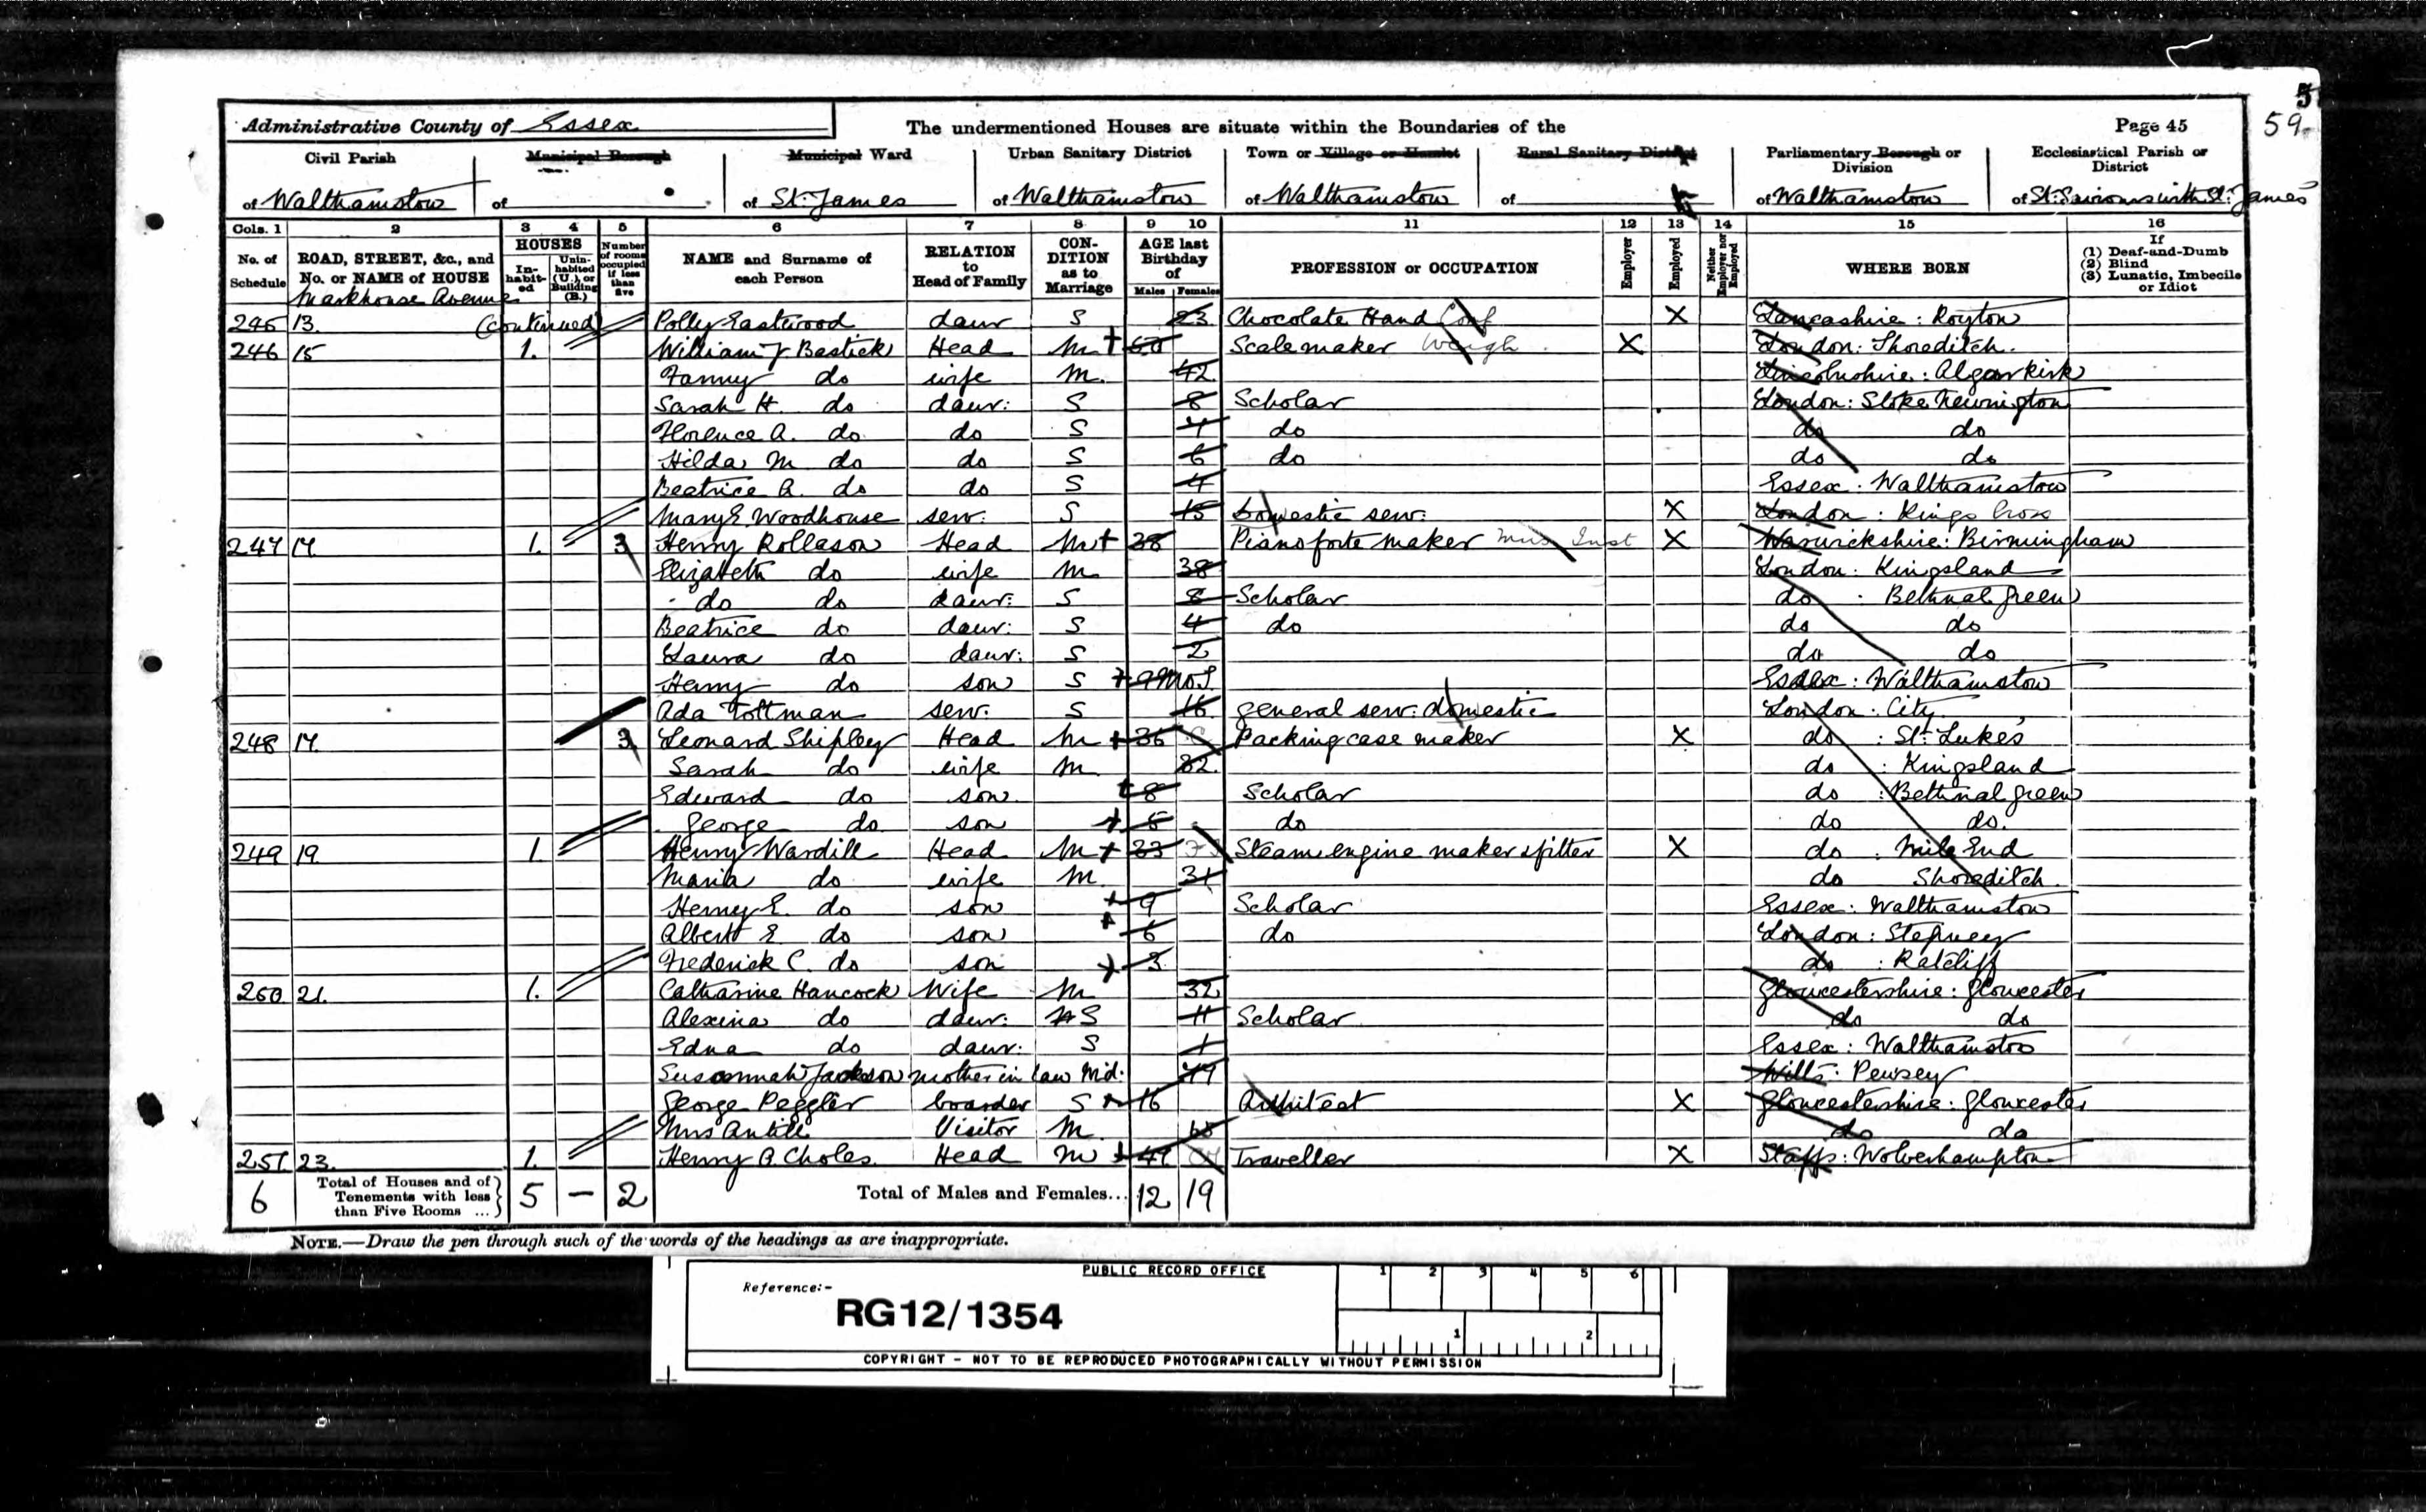 5
59
Administrative County of Essex The undermentioned Houses are situate within the Boundaries of the Page 45
Civil Parish Municipal Borough Municipal Ward Urban Sanitary District Town or Village or Hamlet Rural Sanitary District Parliamentary Borough or Division Ecclesiastical Parish or District
of Walthamstow of of St. James of Walthamstow of Walthamstow of of Walthamstow of St. Saviours with St. James
Cols. 1 2 3 4 5 6 7 8 9 10 11 12 13 14 15 16
No. of Schedule ROAD, STREET, &c., and No. or NAME of HOUSE HOUSES In-habit-ed Unin-habited (U.), or Building (B.) Number of rooms occupied if less than five NAME and Surname of each Person RELATION to Head of Family CON-DITION as to Marriage AGE last Birthday of Males Females PROFESSION or OCCUPATION Employer Employed Neither Employer nor Employed WHERE BORN If (1) Deaf-and-Dumb (2) Blind (3) Lunatic, Imbecile or Idiot
Markhouse Avenue
245 13. (continued) Polly Eastwood daur S 23 Chocolate Hand Conf X Lancashire: Royton
246 15 1. William J Bastick Head M Scale maker Weigh X London: Shoreditch.
Fanny do wife M. 42 Lincolnshire: Algarkirk
Sarah H. do daur: S 8 Scholar London: Stoke Newington
Florence A. do do S 7 do do do
Hilda M do do S 6 do do do
Beatrice A. do do S 4 Essex: Walthamstow
Mary E. Woodhouse serv: S 15 Domestic serv: X London: Kings Cross
247 17 1. 3 Henry Rollason Head M 38 Pianoforte maker Mus Inst X Warwickshire: Birmingham
Elizabeth do wife M 38 London: Kingsland
do do daur: S 8 Scholar do : Bethnal green
Beatrice do daur: S 4 do do do
Laura do daur: S 2 do do
Henry do son S 9 Mos Essex: Walthamstow
Ada Tottman serv: S 16 general serv: domestic London: City
248 17. 3 Leonard Shipley Head M 36 Packing case maker X do : St. Lukes
Sarah do wife M 32 do : Kingsland
Edward do son 8 Scholar do : Bethnal green
George do son 5 do do do.
249 19 1 Henry Wardill Head M 33 Steam engine maker & fitter X do : Mile End
Maria do wife M 31 do Shoreditch.
Henry E. do son 9 Scholar Essex: Walthamstow
Albert E do son 6 do London: Stepney
Frederick C. do son 3 do : Ratcliff
250 21. 1. Catharine Hancock Wife M 32 Gloucestershire: Gloucester
Alexina do daur: S 11 Scholar do do
Edna do daur: S 1 Essex: Walthamstow
Susannah Jackson mother in law Wd: Wilts: Pewsey
George Peggler boarder S 16 Architect X Gloucestershire: Gloucester
Mrs Antill Visitor M do do
251 23. 1. Henry A. Choles Head M Traveller X Staffs: Wolverhampton
6 Total of Houses and of Tenements with less than Five Rooms ... 5 – 2 Total of Males and Females... 12 19
NOTE.—Draw the pen through such of the words of the headings as are inappropriate.
PUBLIC RECORD OFFICE 1 2 3 4 5 6
Reference:-
RG12/1354
1 2
COPYRIGHT - NOT TO BE REPRODUCED PHOTOGRAPHICALLY WITHOUT PERMISSION